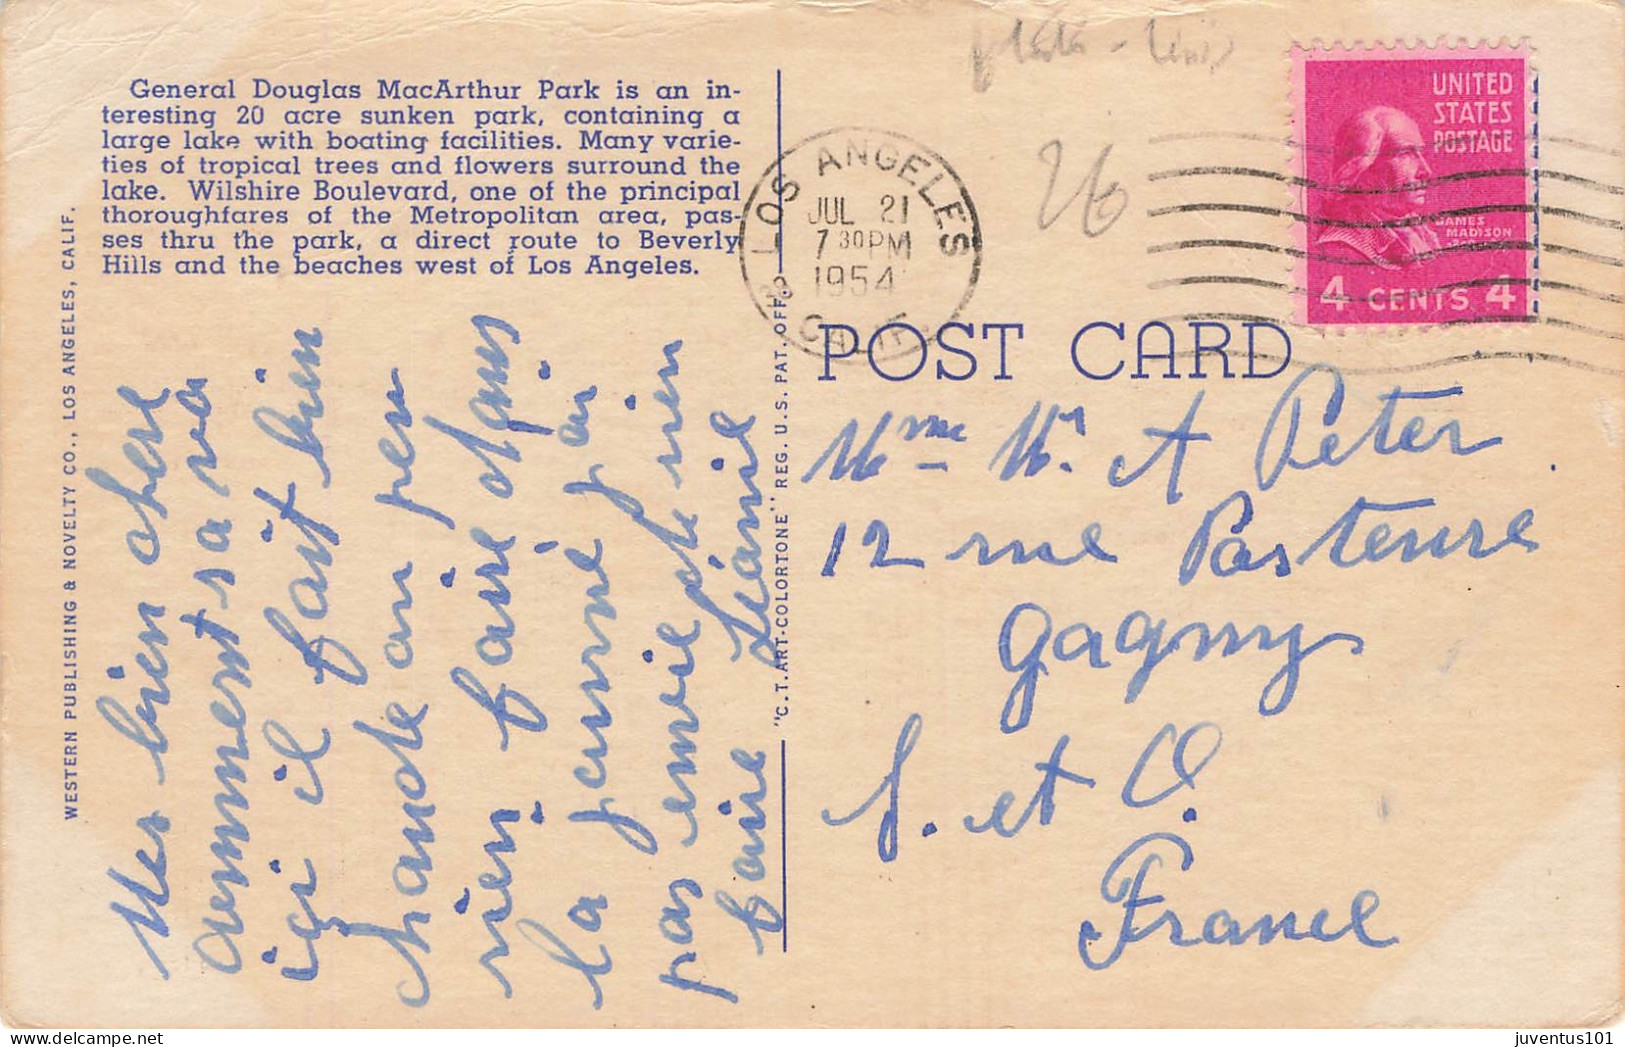 General Douglas MacArthur Park is an in-
teresting 20 acre sunken park, containing a
large lake with boating facilities. Many varie-
ties of tropical trees and flowers surround the
lake. Wilshire Boulevard, one of the principal
thoroughfares of the Metropolitan area, pas-
ses thru the park, a direct route to Beverly
Hills and the beaches west of Los Angeles.
WESTERN PUBLISHING & NOVELTY CO., LOS ANGELES, CALIF.
bien chere
sa va
il fait bien
chaude on peu
rien faire dans
la journé j'ai
pas envie de rien
faire Léanie
"C.T. ART-COLORTONE" REG. U.S. PAT. OFF.
LOS ANGELES
JUL 21
7 30 PM
1954
CALIF.
26
UNITED
STATES
POSTAGE
JAMES
MADISON
4 CENTS 4
POST CARD
Mme Mr. A Peter
12 rue Pasteure
Gagny
S. et O.
France
juventus101